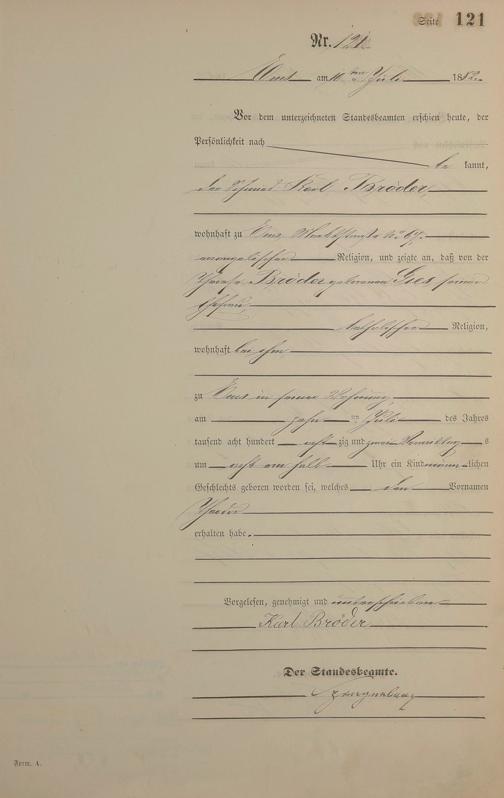 Seite 121
Nr. 121
Ems am 11ten Juli 1882
Vor dem unterzeichneten Standesbeamten erschien heute, der
Persönlichkeit nach
be kannt,
der Karl Bröder,
wohnhaft zu Ems
evangelischer Religion, und zeigte an, daß von der
Bröder geborenen Gies seiner
Ehefrau,
katholischer Religion,
wohnhaft bei ihm
zu Ems in seiner Wohnung,
am zehn ten Juli des Jahres
tausend acht hundert acht zig und zwei Vormittag s
um acht ein halb Uhr ein Kind männ lichen
Geschlechts geboren worden sei, welches den Vornamen
erhalten habe.
Vorgelesen, genehmigt und unterschrieben
Karl Bröder
Der Standesbeamte.
Form. A.